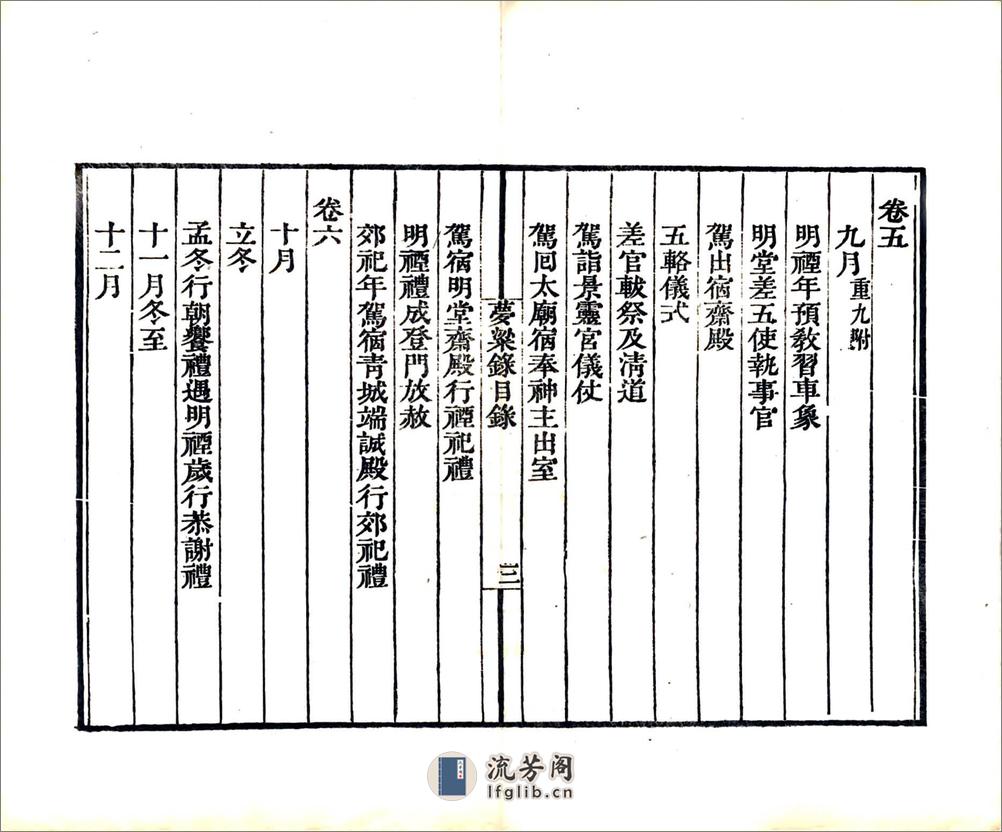 卷五
九月重九附
明禋年預敎習車象
明堂差五使執事官
駕出宿齋殿
五輅儀式
差官軷祭及清道
駕詣景靈宮儀仗
駕回太廟宿奉神主出室
夢粱錄目錄
三
駕宿明堂齋殿行禋祀禮
明禋禮成登門放赦
郊祀年駕宿青城端誠殿行郊祀禮
卷六
十月
立冬
孟冬行朝饗禮遇明禋歲行恭謝禮
十一月冬至
十二月
流芳阁
lfglib.cn